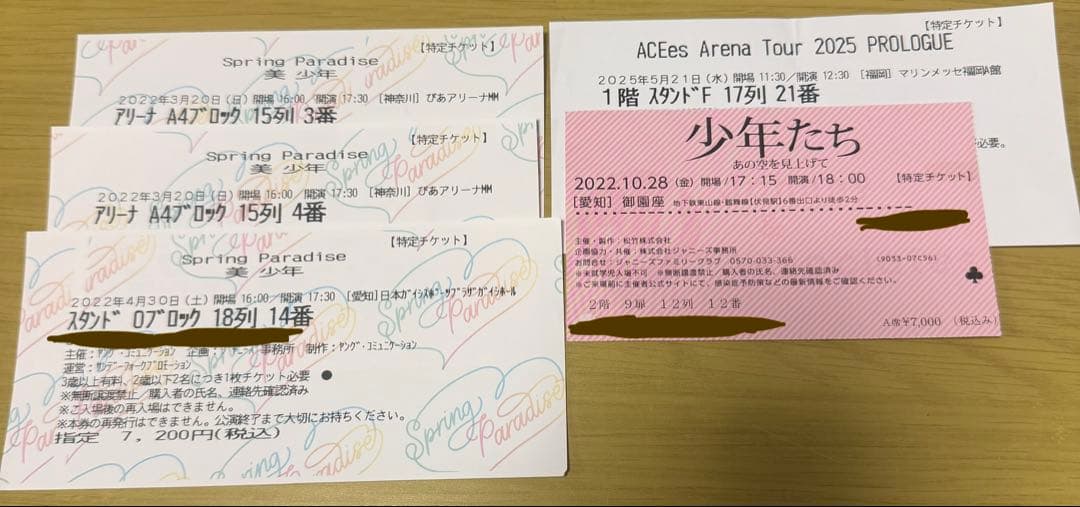 【特定チケット】
Spring Paradise
美 少年
2022年3月20日(日) 開場 16:00/開演 17:30 [神奈川] ぴあアリーナMM
アリーナ A4ブロック 15列 3番
【特定チケット】
Spring Paradise
美 少年
2022年3月20日(日) 開場 16:00/開演 17:30 [神奈川] ぴあアリーナMM
アリーナ A4ブロック 15列 4番
【特定チケット】
Spring Paradise
美 少年
2022年4月30日(土) 開場 16:00/開演 17:30 [愛知]日本ガイシスポーツプラザガイシホール
スタンド Oブロック 18列 14番
主催:ヤング・コミュニケーション 企画: 事務所 制作:ヤング・コミュニケーション
運営:サンデーフォークプロモーション
3歳以上有料、2歳以下2名につき1枚チケット必要 ●
※無断譲渡禁止/購入者の氏名、連絡先確認済み
※ご入場後の再入場はできません。
※本券の再発行はできません。公演終了まで大切にお持ちください。
指定 7,200円(税込)
Spring Paradise
【特定チケット】
ACEes Arena Tour 2025 PROLOGUE
2025年5月21日(水) 開場 11:30/開演 12:30 [福岡] マリンメッセ福岡A館
1階 スタンドF 17列 21番
必要。
少年たち
あの空を見上げて
2022.10.28(金) 開場/17:15 開演/18:00 【特定チケット】
【愛知】御園座 地下鉄東山線・鶴舞線【伏見駅】6番出口より徒歩2分
主催・製作:松竹株式会社
企画協力・共催:株式会社ジャニーズ事務所
お問合せ:ジャニーズファミリークラブ 0570-033-366 (9033-07C56)
※未就学児入場不可 ※無断譲渡禁止/購入者の氏名、連絡先確認済み
※ご来場前に主催者公式サイトにて、感染症予防策などの最新情報をご確認ください。
2階 9扉 12列 12番
A席¥7,000 (税込み)